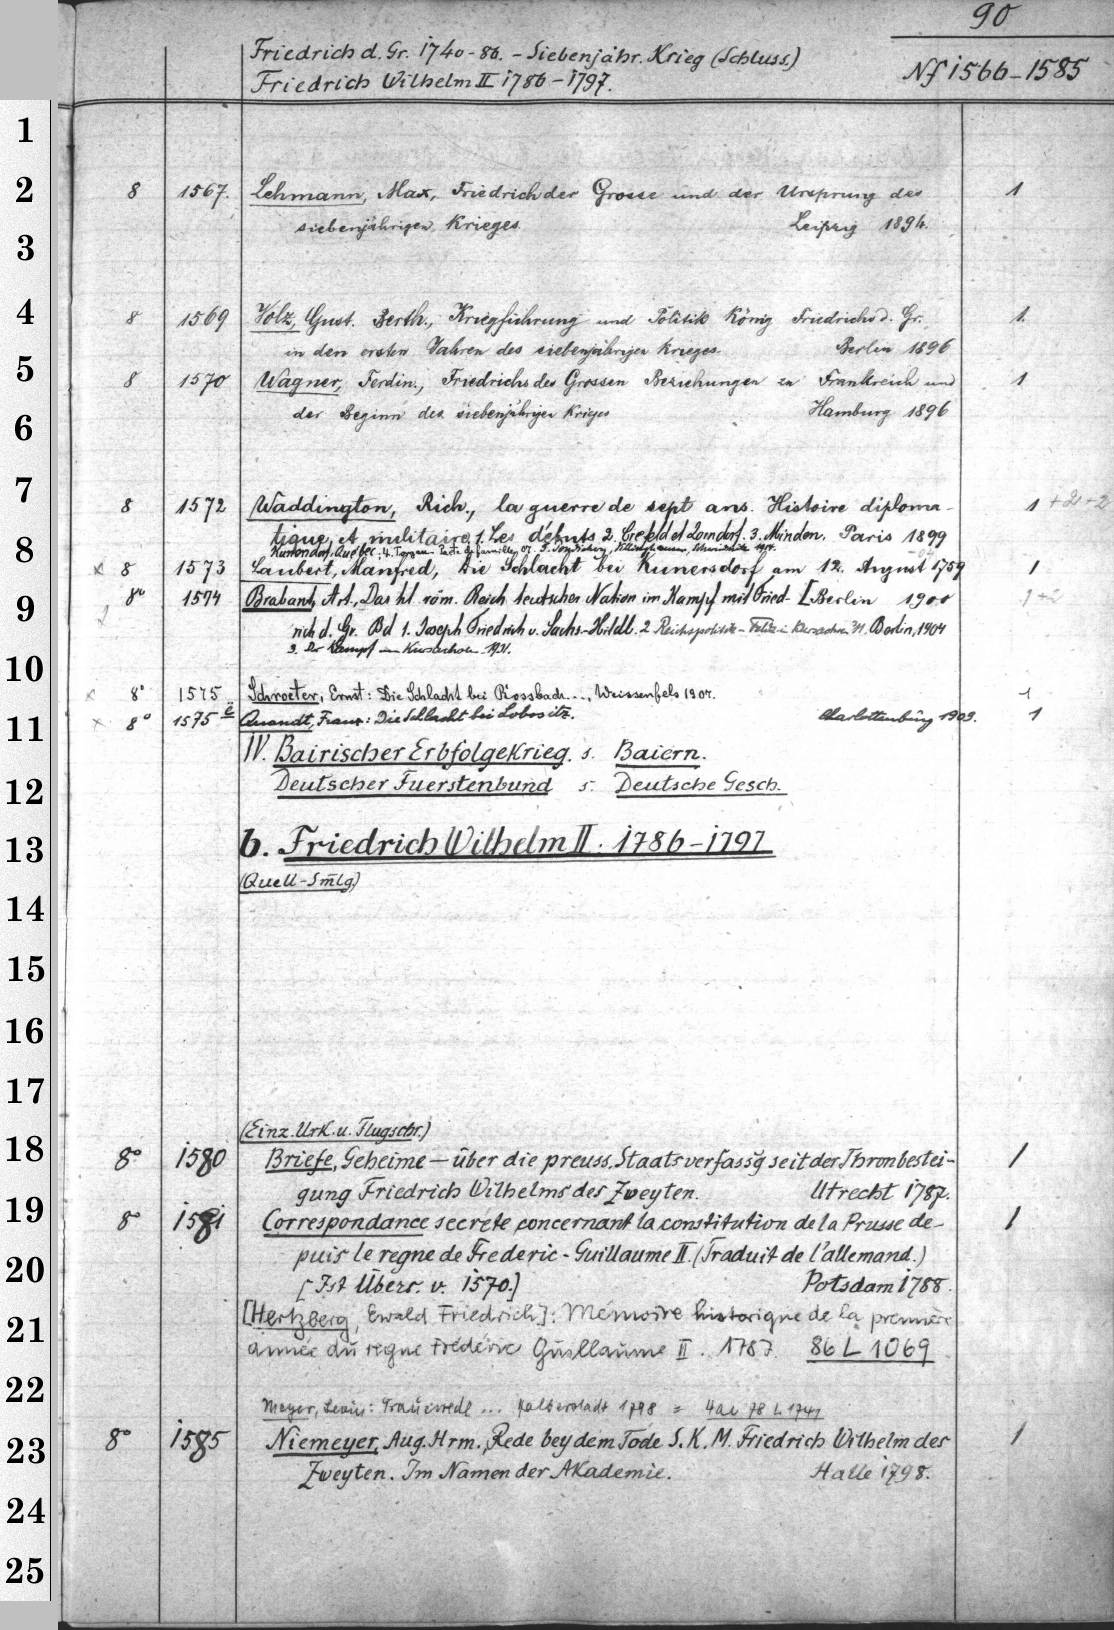 90
Friedrich d. Gr. 1740-86. - Siebenjähr. Krieg (Schluss.)
Friedrich Wilhelm II 1786-1797.
Nf 1566-1585
1
2 8 1567. Lehmann, Max, Friedrich der Grosse und der Ursprung des 1
siebenjährigen Krieges. Leipzig 1894.
3
4 8 1569 Volz, Gust. Berth., Kriegführung und Politik König Friedrichs d. Gr. 1.
in den ersten Jahren des siebenjährigen Krieges. Berlin 1896
5 8 1570 Wagner, Ferdin., Friedrichs des Grossen Beziehungen zu Frankreich und 1
der Beginn des siebenjährigen Krieges Hamburg 1896
6
7 8 1572 Waddington, Rich., la guerre de sept ans. Histoire diploma- 1 +2 +2
tique et militaire. 1. Les débuts 2. Crefeld et Zorndorf. 3. Minden. Paris 1899
Kunersdorf. Québec. 4. Torgau. Pacte de famille, 07. 5.
8 x 8 1573 Laubert, Manfred, Die Schlacht bei Kunersdorf am 12. August 1759 1
[Berlin 1900
9 8° 1574 Brabant, Art., Das hl. röm. Reich teutscher Nation im Kampf mit Fried- 1+2
rich d. Gr. Bd 1. Joseph Friedrich v. Sachs.-Hildb. 2 Reichspolitik Berlin, 1904
3. Der Kampf um Kursachsen 1931.
10
x 8° 1575 Schroeter, Ernst: Die Schlacht bei Rossbach..., Weissenfels 1907. 1
11 x 8° 1575 Quandt, Franz: Die Schlacht bei Lobositz. Charlottenburg 1909. 1
IV. Bairischer Erbfolgekrieg. s. Baiern.
12 Deutscher Fuerstenbund s. Deutsche Gesch.
13 b. Friedrich Wilhelm II. 1786-1797
(Quell-Smlg)
14
15
16
17
(Einz. Urk. u. Flugschr.)
18 8° 1580 Briefe, Geheime — über die preuss. Staatsverfassg seit der Thronbestei- 1
gung Friedrich Wilhelms des Zweyten. Utrecht 1787.
19 8° 1581 Correspondance secrete concernant la constitution de la Prusse de- 1
puis le regne de Frederic-Guillaume II. (Traduit de l'allemand.)
20 [Ist Übers. v. 1570.] Potsdam 1788.
[Hertzberg, Ewald Friedrich]: Mémoire historique de la première
21 année du regne Frédéric Guillaume II. 1787. 86 L 1069
22
Meyer, : Trauerrede ... Halberstadt 1798 = 4ae 78 L 1741
23 8° 1585 Niemeyer, Aug. Hrm., Rede bey dem Tode S. K. M. Friedrich Wilhelm des 1
Zweyten. Im Namen der Akademie. Halle 1798.
24
25